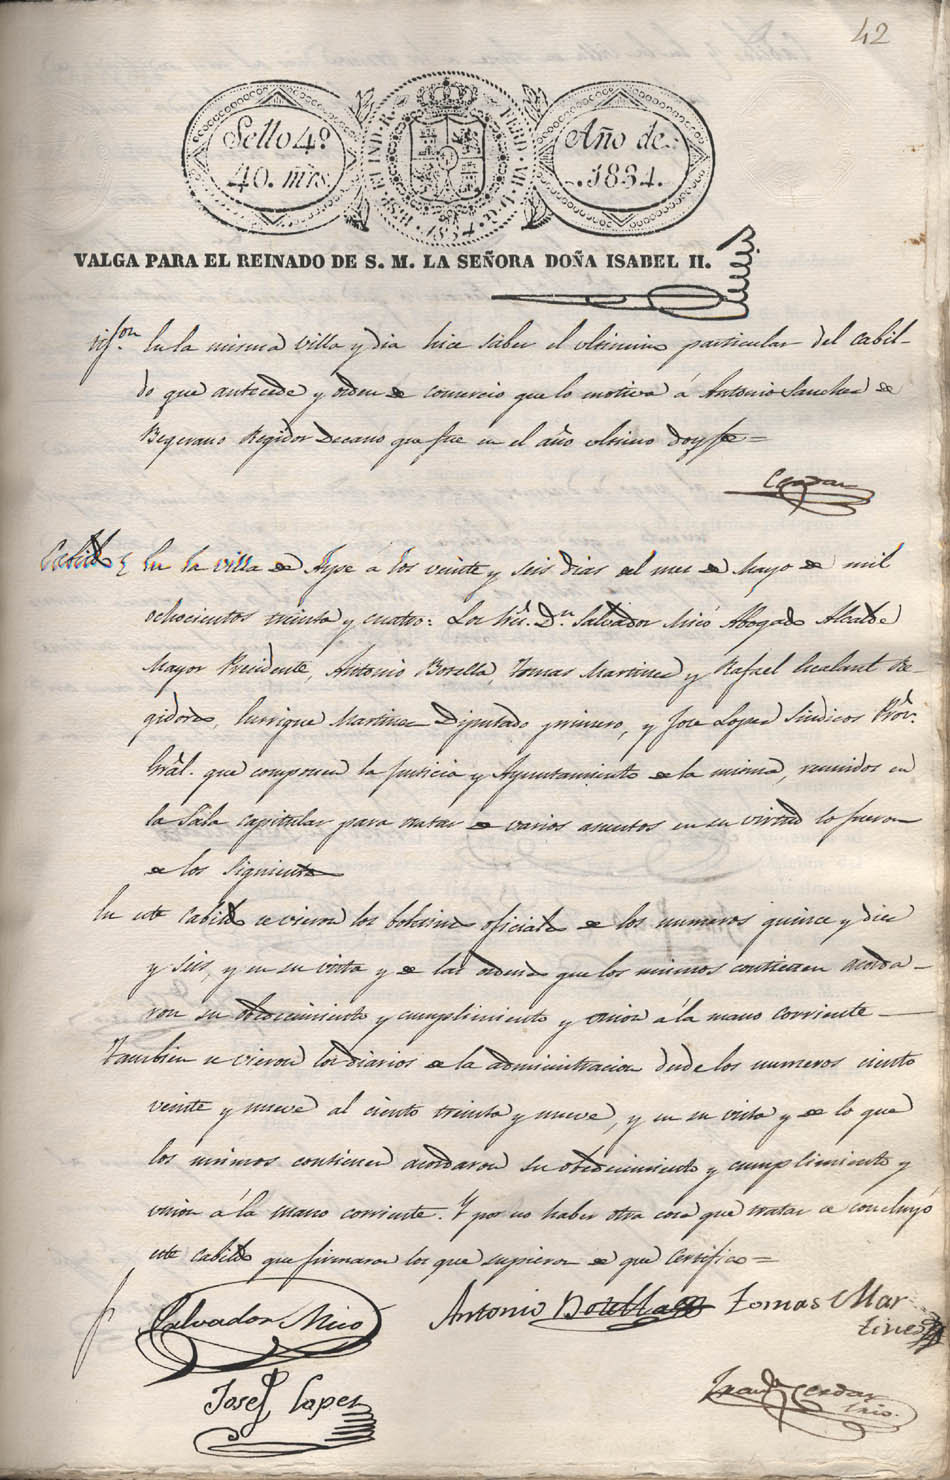 42
Sello 4º.
40. mrs.
HISP. ET IND. R. FERD. VII. D. G.
1834.
Año de
1834.
VALGA PARA EL REINADO DE S. M. LA SEÑORA DOÑA ISABEL II.
En la misma villa y dia hice saber el ultimo particular del Cabil-
do que antecede y orden de comercio que lo motiva á Antonio Sanchez de
Begerano Regidor Decano que fue en el año ultimo doy fe =
Cerdan
Cabildo En la villa de Aspe á los veinte y seis dias del mes de Mayo de mil
ochocientos treinta y cuatro: Los Sres. Dn. Salvador Micó Abogado Alcalde
Mayor Presidente, Antonio Botella, Tomas Martinez y Rafael Alcalant Re-
gidores, Enrrique Martinez Diputado primero, y Jose Lopez Sindicos Prôr.
Gral. que componen la Justicia y Ayuntamiento de la misma, reunidos en
la Sala Capitular para tratar de varios asuntos en su virtud lo fueron
de los siguientes
En este Cabildo se vieron los boletines oficiales de los numeros quince y diez
y seis, y en su vista y de las ordenes que los mismos contienen acorda-
ron su obedecimiento y cumplimiento y union á la mano corriente
Tambien se vieron los diarios de la administracion desde los numeros ciento
veinte y nueve al ciento treinta y nueve, y en su vista y de lo que
los mismos contienen acordaron su obedecimiento y cumplimiento y
union á la mano corriente. Y por no haber otra cosa que tratar se concluyó
este Cabildo que firmaron los que supieron de que Certifico =
Salvador Micó
Antonio Botella
Tomas Mar
tines
Josef Lopez
Cerdan